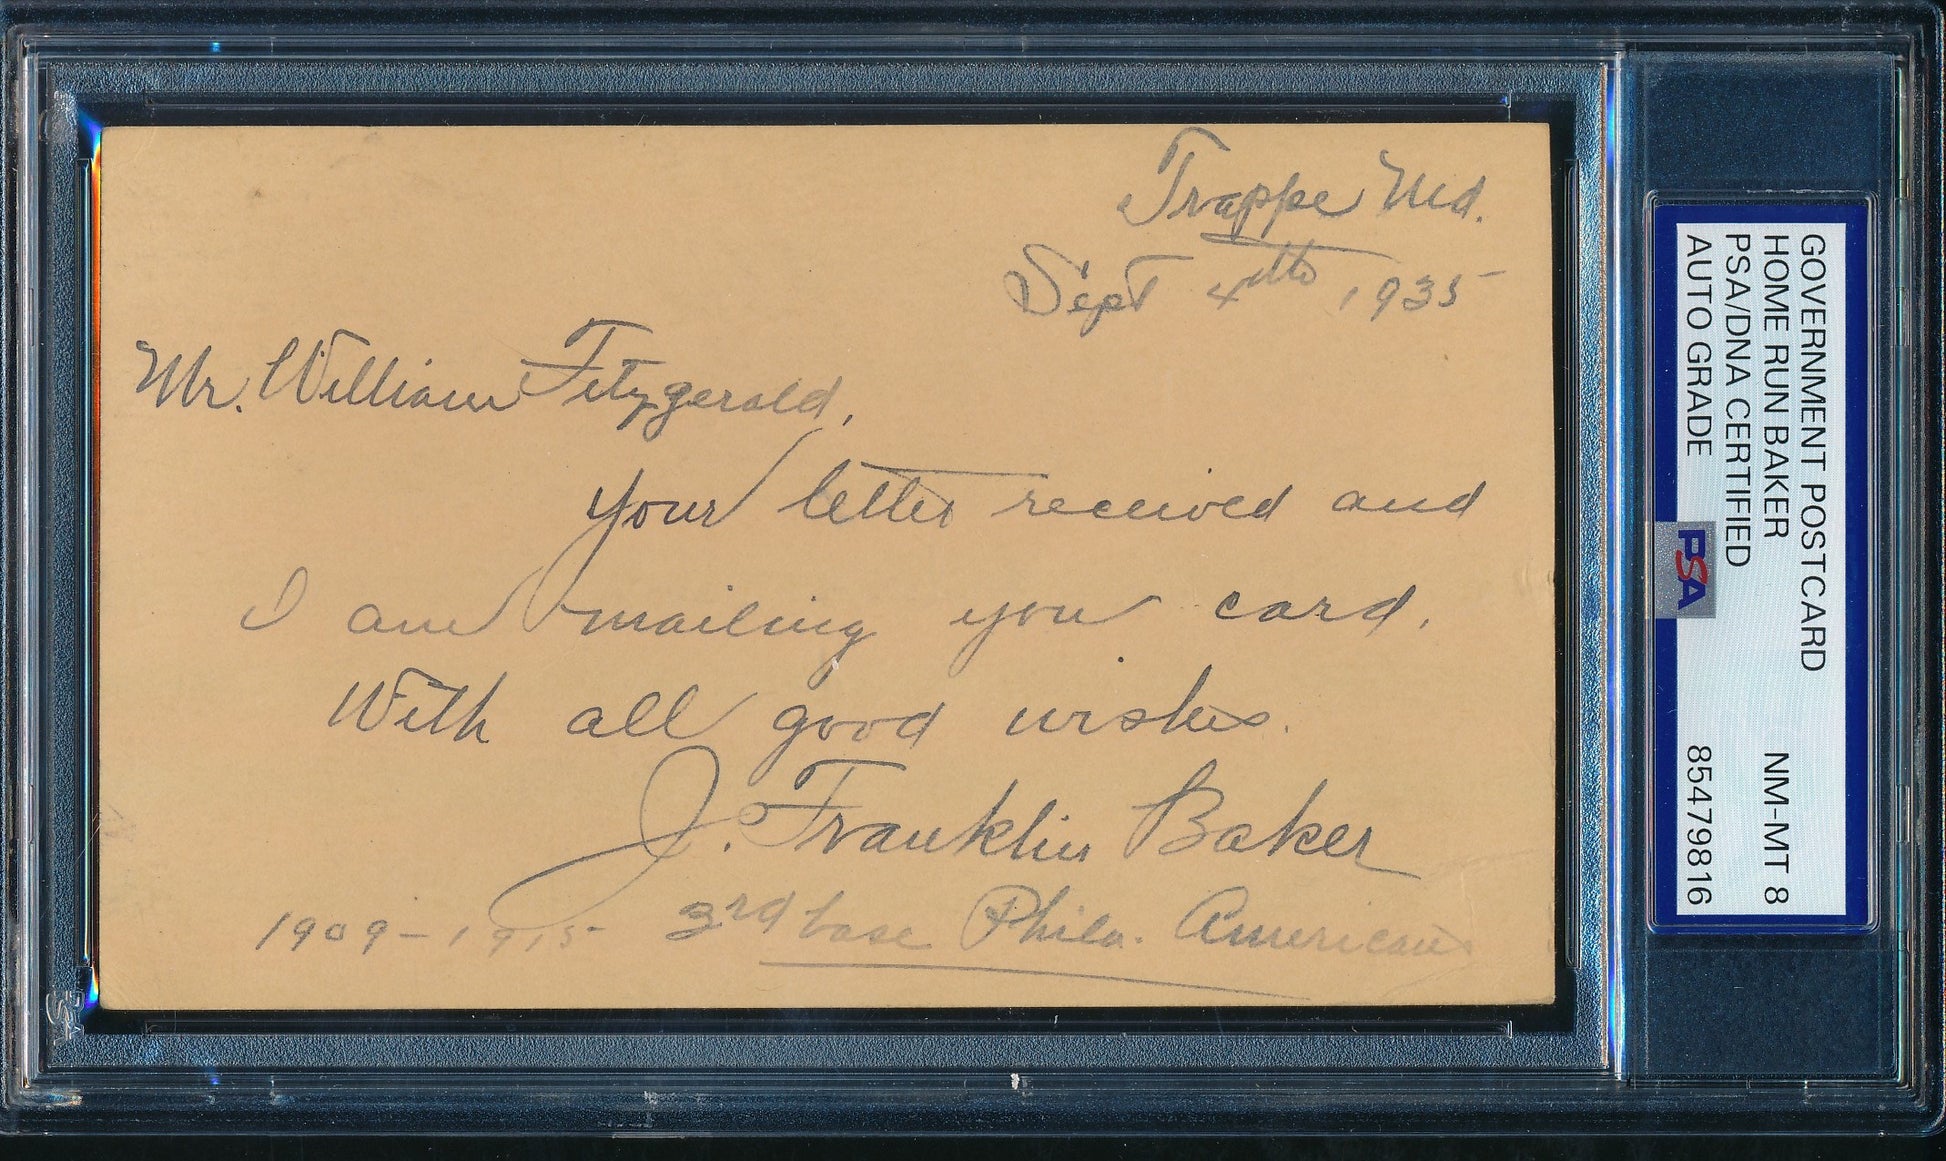 Trappe Md.
Sept 4th, 1935
Mr. William Fitzgerald,
Your letter received and
I am mailing you card.
With all good wishes.
J. Franklin Baker
1909-1915- 3rd base Phila. Americans
GOVERNMENT POSTCARD
HOME RUN BAKER NM-MT 8
PSA/DNA CERTIFIED
AUTO GRADE 85479816
PSA